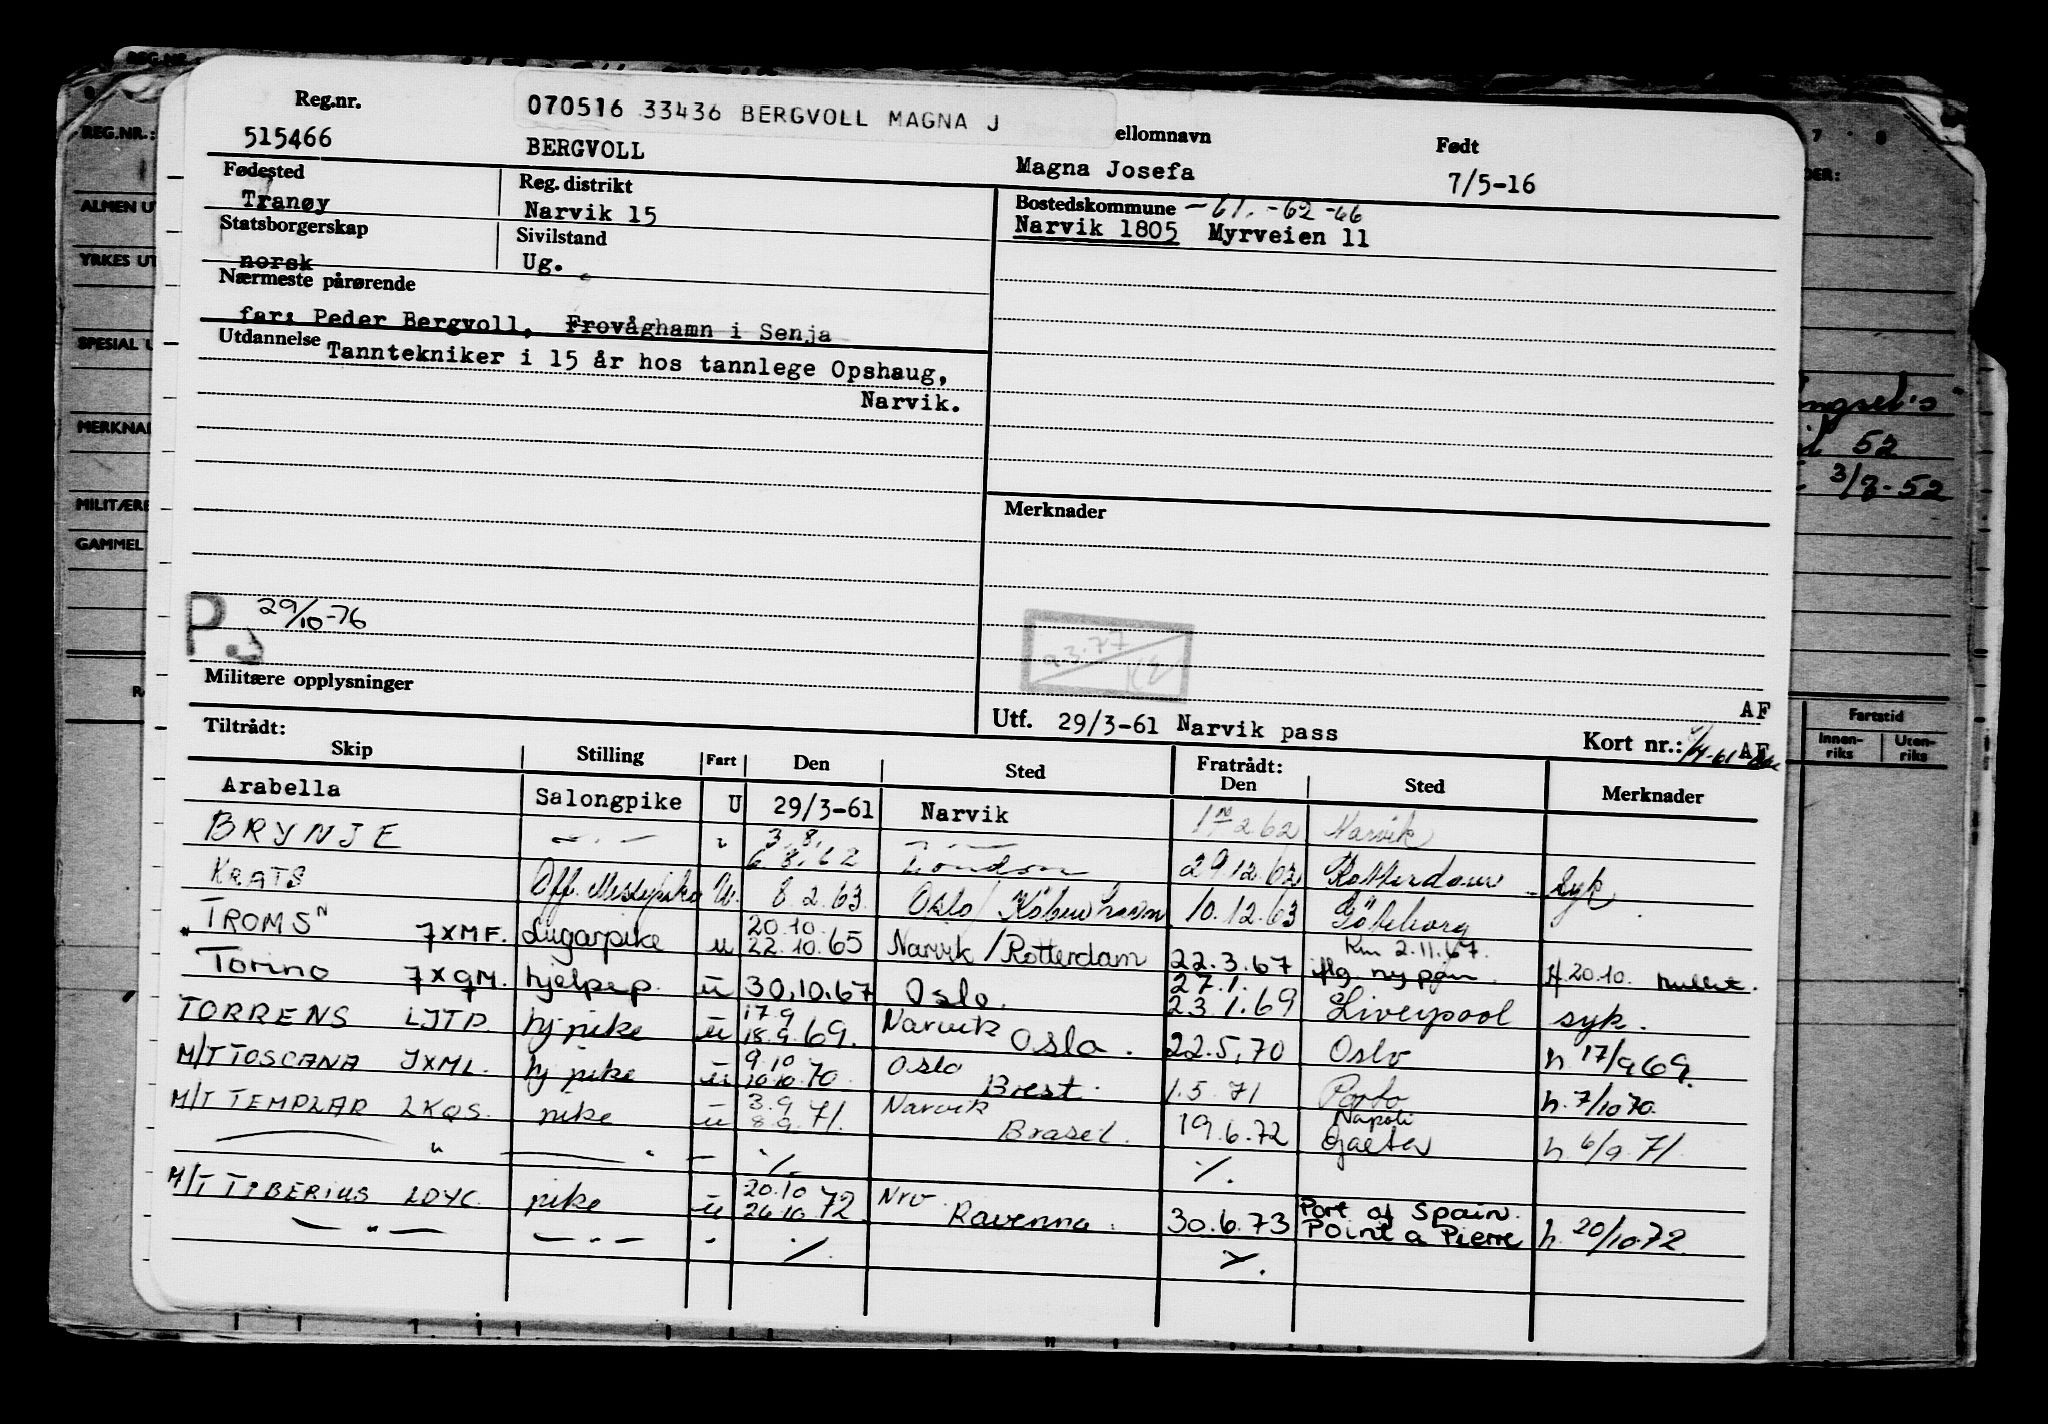 Reg.nr.
070516 33436 BERGVOLL MAGNA J
ellomnavn
Født
515466 BERGVOLL Magna Josefa 7/5-16
Fødested Reg. distrikt Bostedskommune -61.-62-66
Tranøy Narvik 15 Narvik 1805 Myrveien 11
Statsborgerskap Sivilstand
norsk Ug.
Nærmeste pårørende
far: Peder Bergvoll, Frovåghamn i Senja
Utdannelse Tanntekniker i 15 år hos tannlege Opshaug,
Narvik.
Merknader
P 29/10-76
9.3.77
Militære opplysninger
AF
Utf. 29/3-61 Narvik pass
Kort nr.: AF
Tiltrådt: Fratrådt:
Skip Stilling Fart Den Sted Den Sted Merknader
Arabella Salongpike U 29/3-61 Narvik 2.62 Narvik
BRYNJE — " — " 3.8. 6.8.62 — " — London 29.12.62 Rotterdam syk
KRATS Off. Messepike U. 8.2.63 Oslo/København 10.12.63 Göteborg
TROMS JXMF. Lugarpike u 20.10 22.10.65 Narvik/Rotterdam 22.3.67 2.11.67. H 20.10.
Torino JXQM. hjelpep. u 30.10.67 Oslo. 27.1. 23.1.69 Liverpool syk.
TORRENS LJTD. hj.pike u 17.9 18.9.69. Narvik Oslo. 22.5.70 Oslo h. 17/9 69.
M/T TOSCANA JXML. hj pike u 9.10 10.10.70. Oslo Brest. 1.5.71 Porto h. 7/10 70.
M/T TEMPLAR LKQS. pike u 3.9 8.9.71. Narvik Brasil. 19.6.72 Napoli Gaeta h. 6/9.71.
— " — — " — - ./. ./.
M/T TIBERIUS LDYC. pike u 20.10 26.10.72. Nrv Ravenna. 30.6.73 Port of Spain. Point a Pierre h. 20/10.72.
— " — — " — - ./. ./.
REG.NR.:
ALMEN UT
YRKES UT
SPESIAL U
MERKNA
MILITÆRE
GAMMEL
7 . 8
DER:
52
3/7-52
Fartstid
Innen-riks Uten-riks